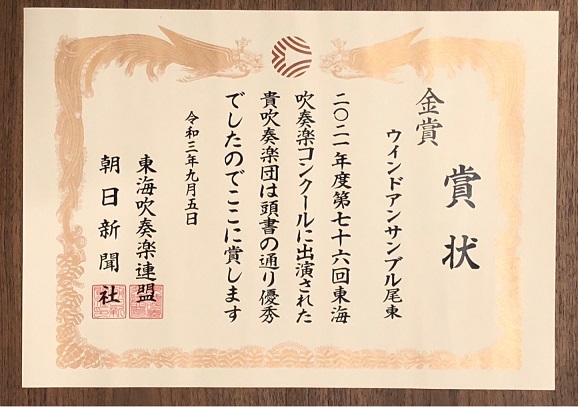 賞状
金賞
ウインドアンサンブル尾東
二〇二一年度第七十六回東海
吹奏楽コンクールに出演された
貴吹奏楽団は頭書の通り優秀
でしたのでここに賞します
令和三年九月五日
東海吹奏楽連盟
朝日新聞社